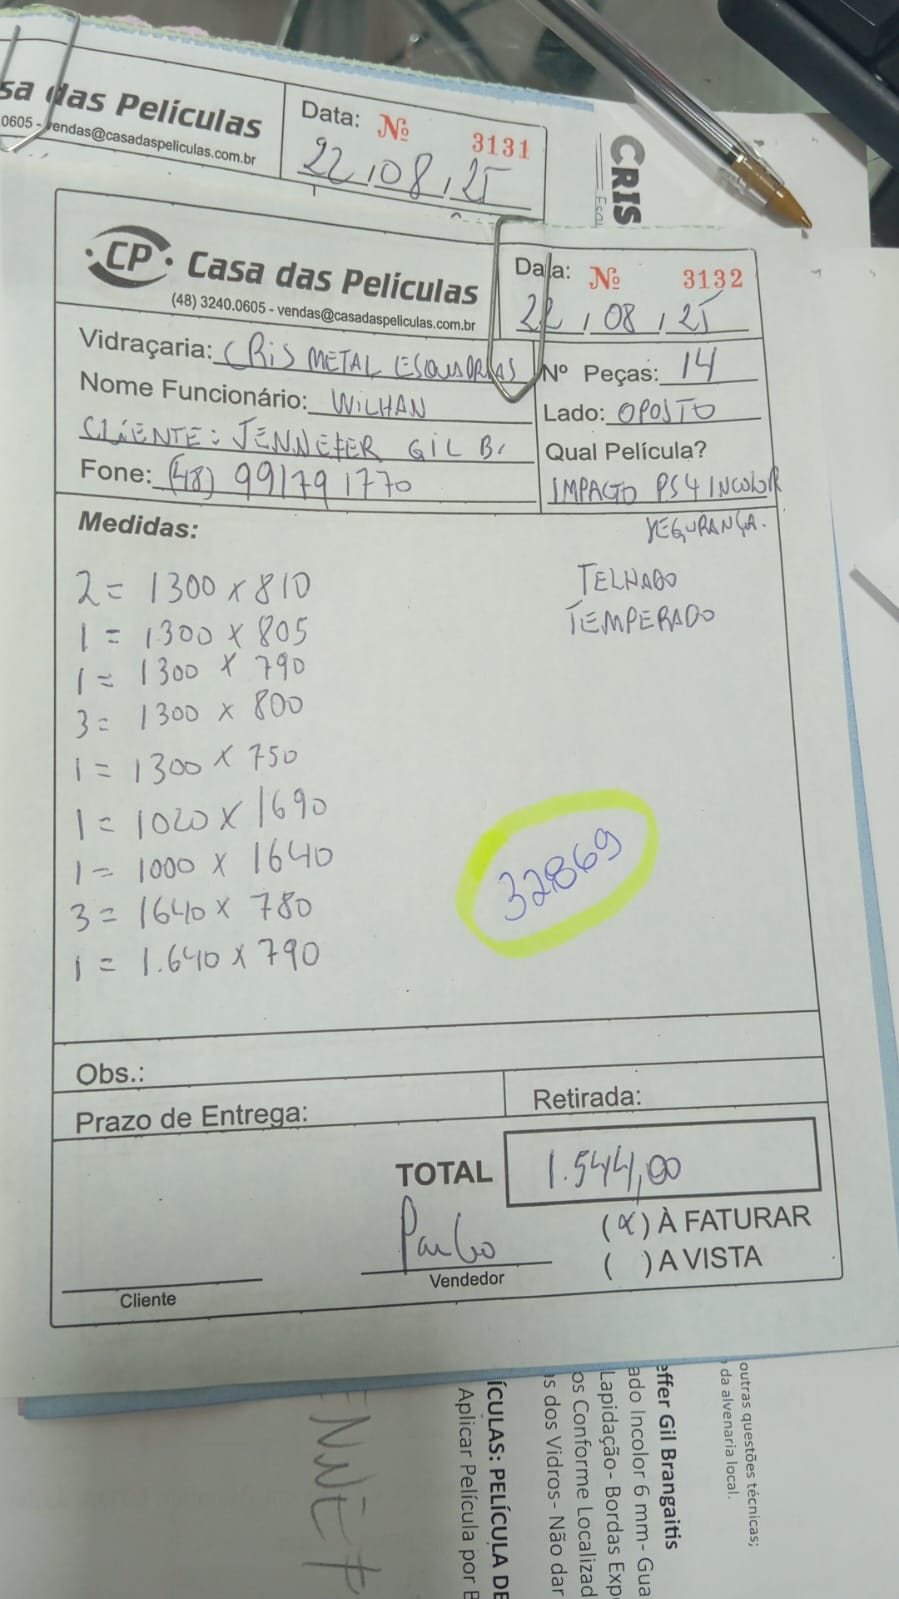 sa das Películas
0605 - vendas@casadaspeliculas.com.br
Data: Nº 3131
22,08,25
CRIS
CP Casa das Películas
(48) 3240.0605 - vendas@casadaspeliculas.com.br
Data: Nº 3132
22,08,25
Vidraçaria: CRIS METAL ESQUADRIAS
Nº Peças: 14
Nome Funcionário: WILHAN
Lado: OPOSTO
CLIENTE: JENNEFER GIL B.
Qual Película?
Fone: (48) 99179 1770
IMPACTO PS4 INCOLOR
SEGURANÇA.
Medidas:
TELHADO
TEMPERADO
2 = 1300 x 810
1 = 1300 x 805
1 = 1300 x 790
3 = 1300 x 800
1 = 1300 x 750
1 = 1020 x 1690
1 = 1000 x 1640
3 = 1640 x 780
1 = 1.640 x 790
32869
Obs.:
Prazo de Entrega:
Retirada:
TOTAL 1.544,00
(x) À FATURAR
( ) A VISTA
Paulo
Vendedor
Cliente
outras questões técnicas;
da alvenaria local.
effer Gil Brangaitis
ado Incolor 6 mm- Gua
Lapidação- Bordas Exp
os Conforme Localizad
as dos Vidros- Não dar
ÍCULAS: PELÍCULA DE
Aplicar Película por E